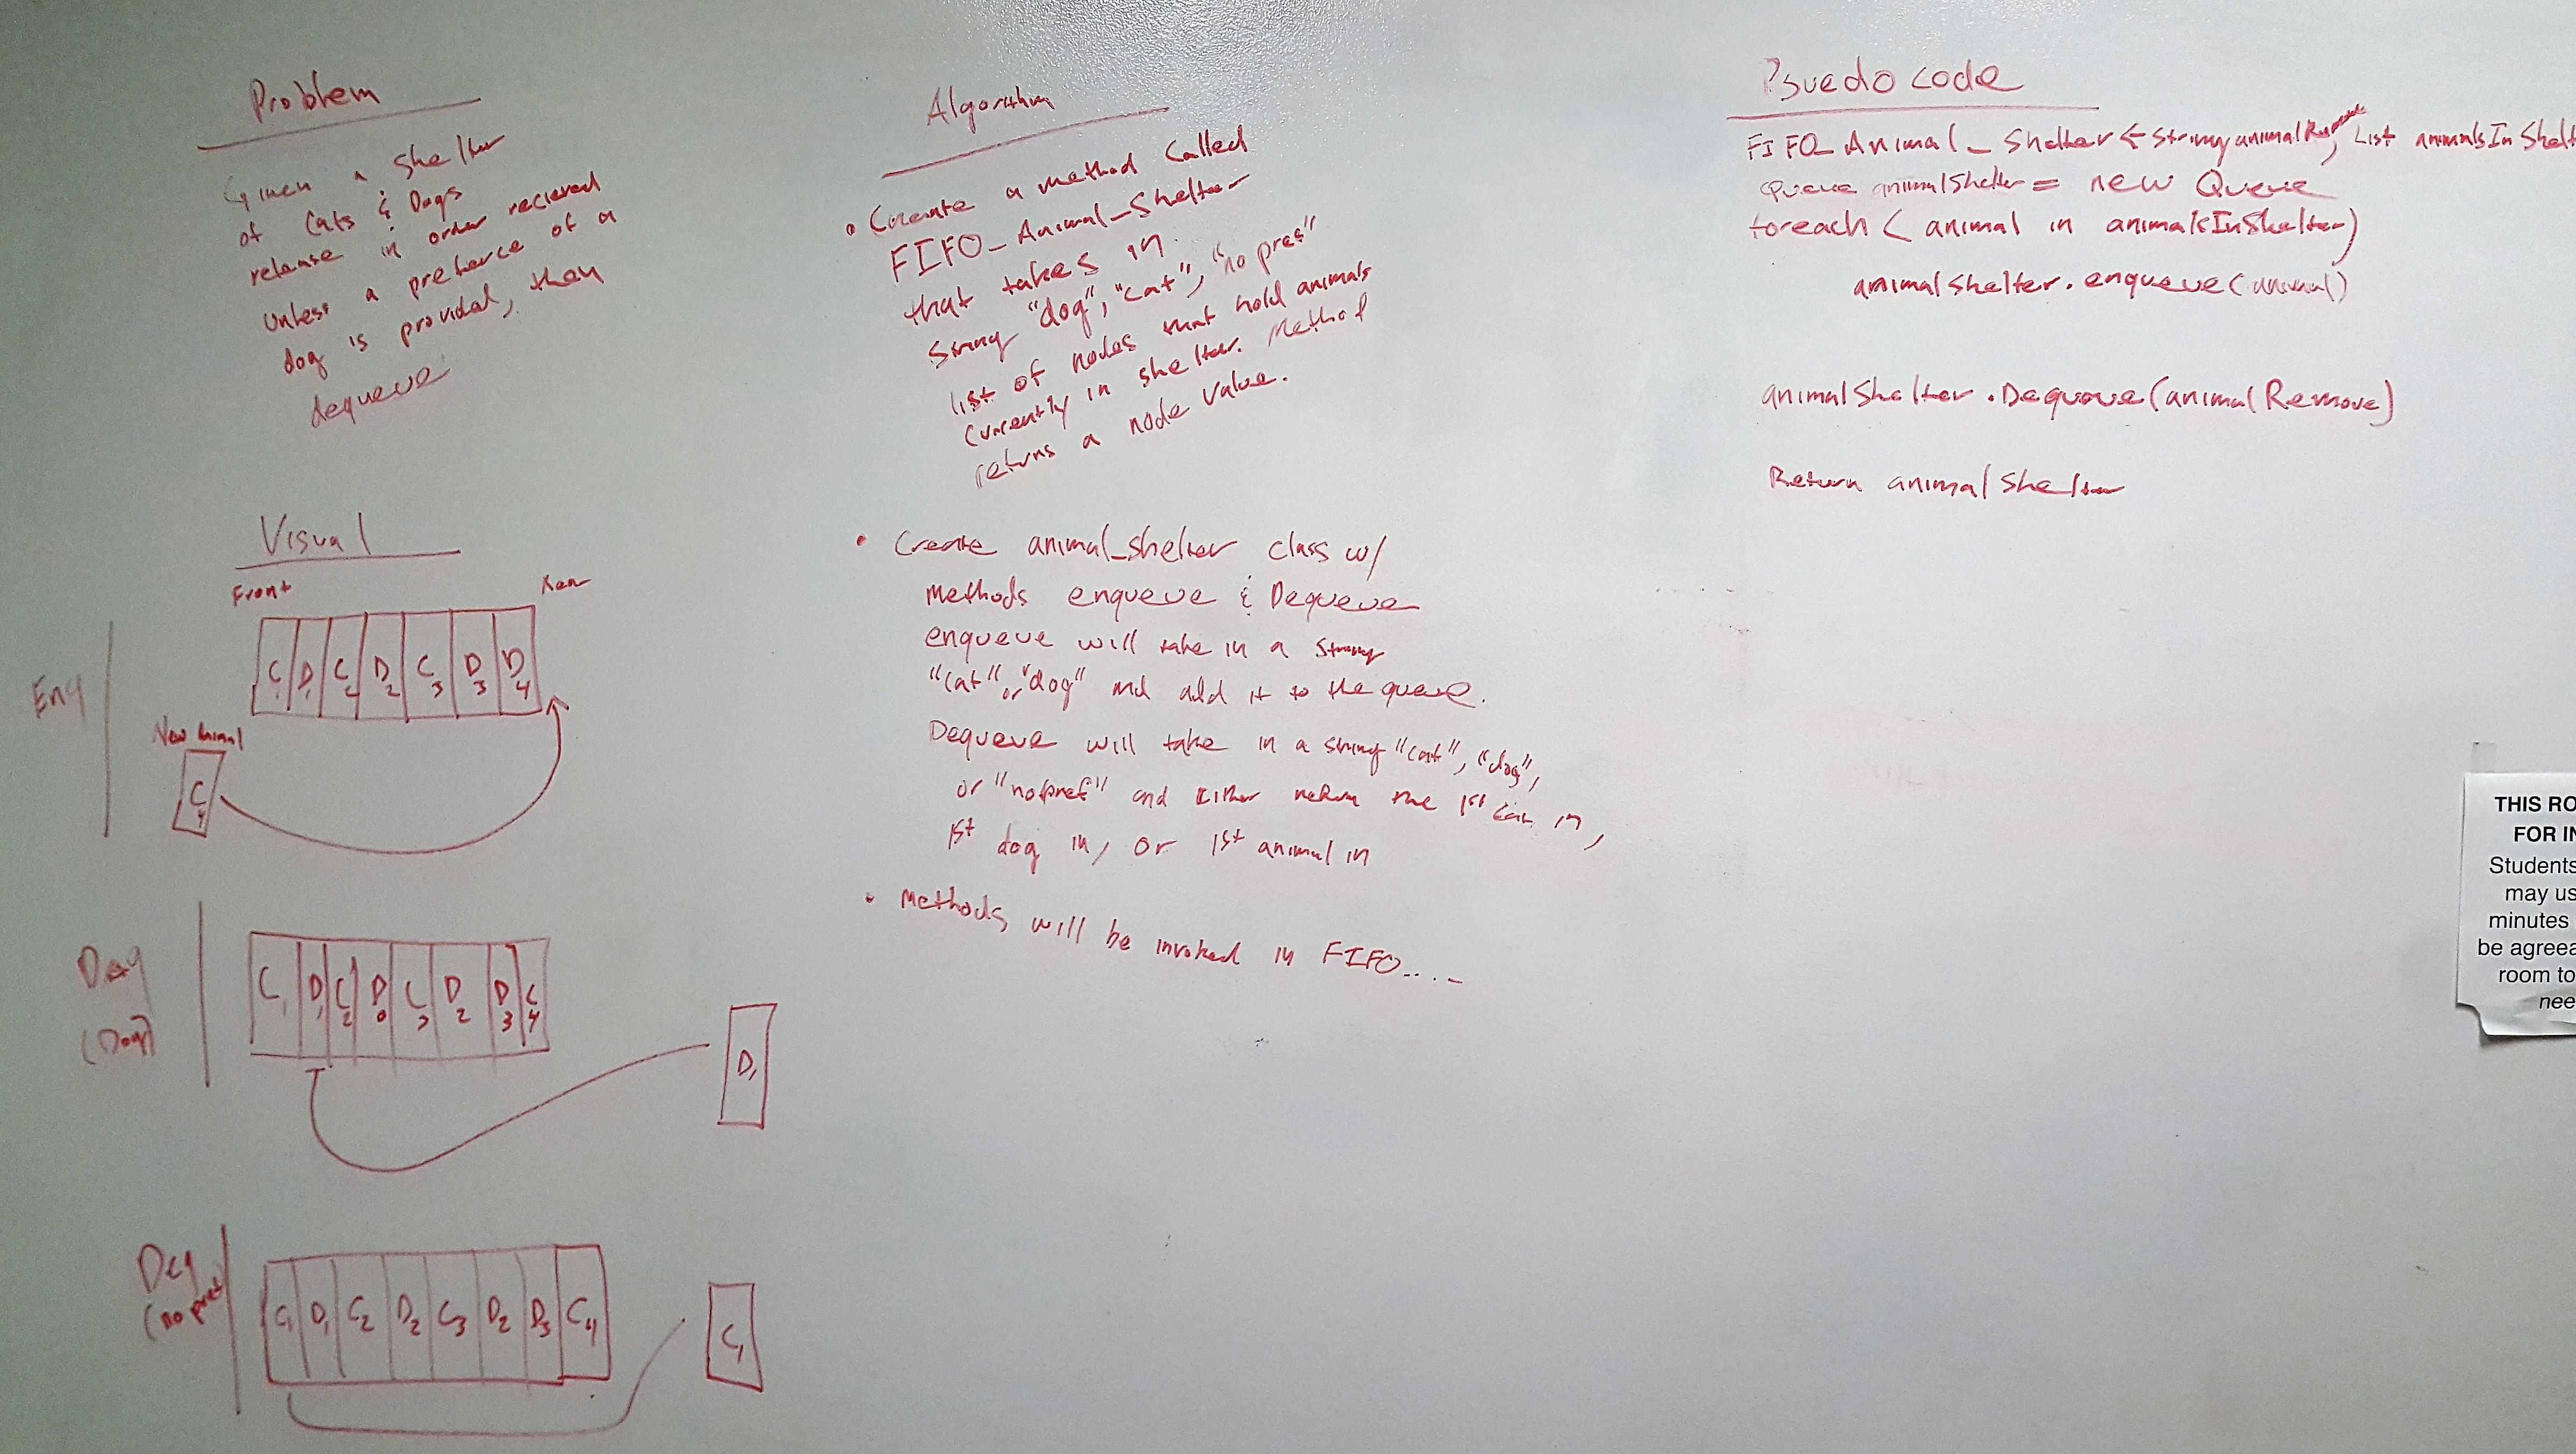 Problem
Given a shelter
of Cats & Dogs
release in order recieved
unless a preference of a
dog is provided, then
dequeue
Visual
Front Rear
Enq
C1 D1 C2 D2 C3 D3 D4
New Animal
C4
Deq
(Dog)
C1 D1 C2 D C3 D2 D3 C4
D1
Deq
(no pref
C1 D1 C2 D2 C3 D2 D3 C4
C1
Algorithm
• Create a method called
FIFO_Animal_Shelter
that takes in
String "dog", "cat", "no pref"
list of nodes that hold animals
currently in shelter. Method
returns a node value.
• Create animal_shelter class w/
Methods enqueue & Dequeue
enqueue will take in a string
"cat" or "dog" and add it to the queue.
Dequeue will take in a string "cat", "dog",
or "no pref" and either return the 1st cat in,
1st dog in, or 1st animal in
• Methods will be invoked in FIFO....
Psuedo code
FIFO_Animal_Shelter ← String animalRemove, List animalsInShelt
Queue animalShelter = new Queue
foreach ( animal in animalsInShelter)
animalShelter.enqueue(animal)
animalShelter.Dequeue(animalRemove)
Return animalShelter
THIS RO
FOR IN
Students
may us
minutes
be agreea
room to
nee